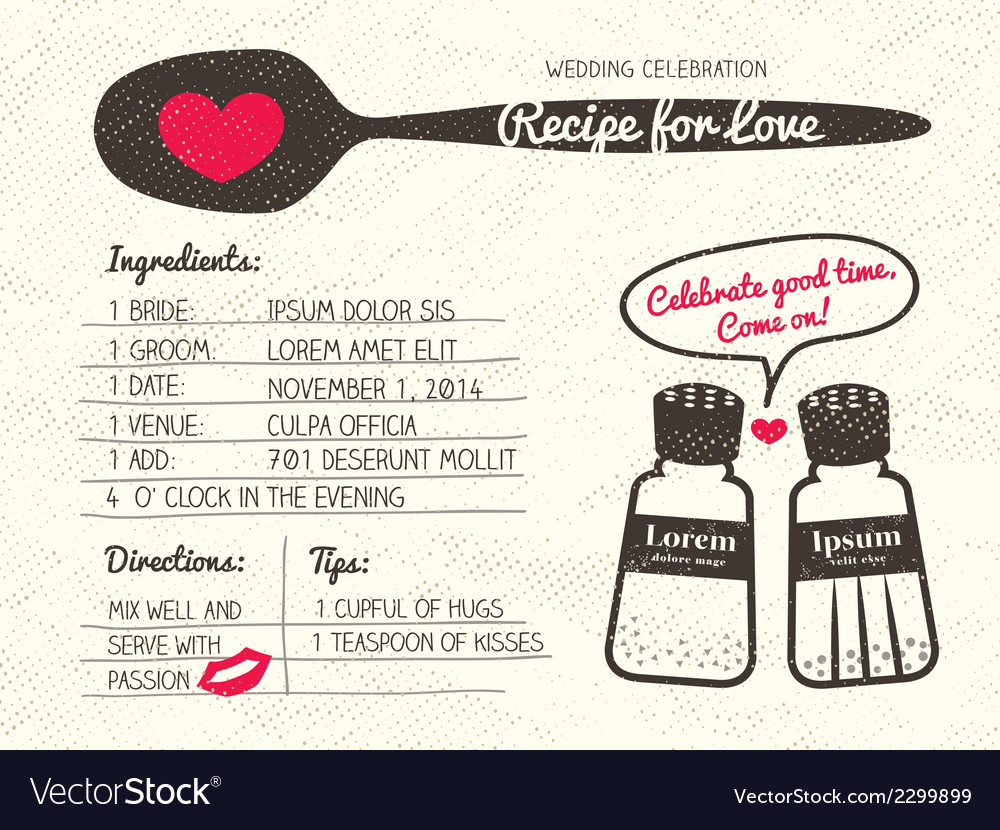 WEDDING CELEBRATION
Recipe for Love
Ingredients:
1 BRIDE: IPSUM DOLOR SIS
1 GROOM: LOREM AMET ELIT
1 DATE: NOVEMBER 1, 2014
1 VENUE: CULPA OFFICIA
1 ADD: 701 DESERUNT MOLLIT
4 O' CLOCK IN THE EVENING
Directions:
MIX WELL AND
SERVE WITH
PASSION
Tips:
1 CUPFUL OF HUGS
1 TEASPOON OF KISSES
Celebrate good time,
Come on!
Lorem
dolore mage
Ipsum
velit esse
VectorStock®
VectorStock.com/2299899